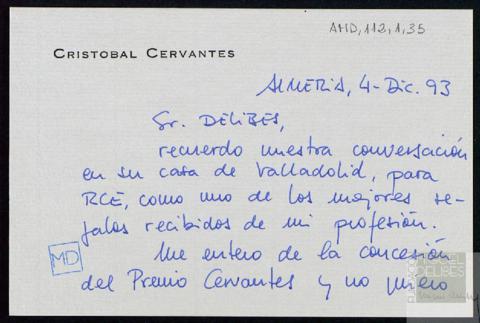 AMD,112,1,35
CRISTOBAL CERVANTES
ALMERIA, 4-Dic. 93
Sr. DELIBES,
recuerdo nuestra conversación
en su casa de Valladolid, para
RCE, como uno de los mejores re-
galos recibidos de mi profesión.
Me entero de la concesión
MD
del Premio Cervantes y no quiero
FUNDACIÓN
MIGUEL
DELIBES